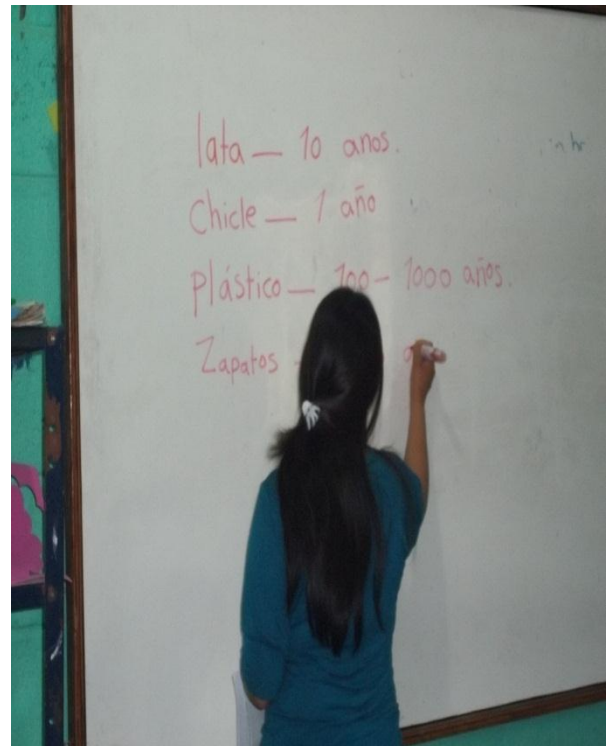 lata — 10 anos.
Chicle — 1 año
plástico — 100 - 1000 años.
Zapatos -